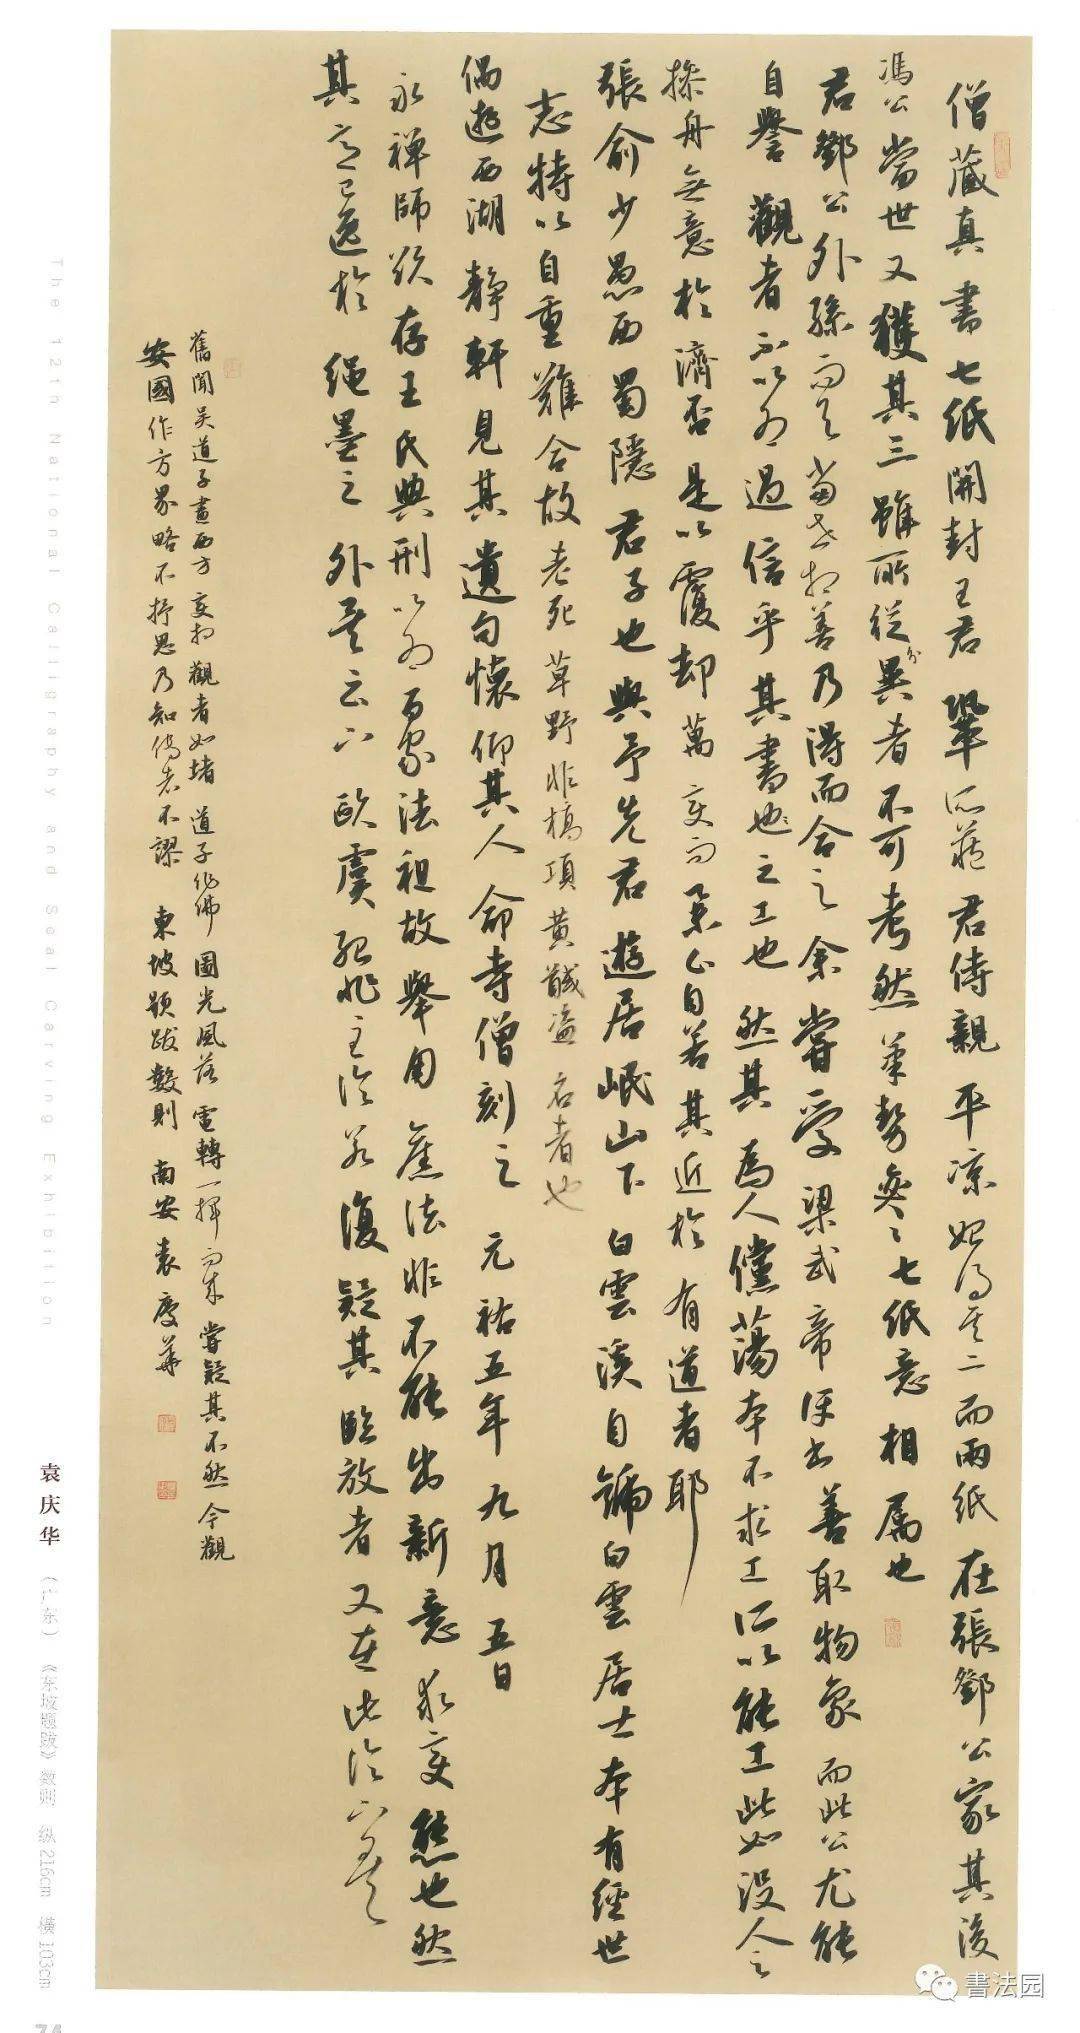 僧藏真書七紙開封王君鞏所藏君侍親平涼始得其二而兩紙在張鄧公家其後
馮公當世又獲其三雖所從分異者不可考然筆勢奕々七紙意相屬也
君鄧公外孫而與當世相善乃得而合之余嘗愛梁武帝評書善取物象而此公尤能
自譽觀者不以為過信乎其書也之工也然其為人儻蕩本不求工所以能工此如沒人之
操舟無意於濟否是以覆却萬變而舉止自若其近於有道者耶
張俞少愚西蜀隱君子也與予先君遊居岷山下白雲溪自號白雲居士本有經世
志特以自重難合故老死草野非槁項黃馘盜名者也
偶遊西湖靜軒見其遺句懷仰其人命寺僧刻之元祐五年九月五日
永禪師欲存王氏典刑以為百家法祖故舉用舊法非不能出新意求變態也然
其意已逸於繩墨之外矣云下歐虞殆非至論若復疑其臨放者又在此論下矣
舊聞吳道子畫西方變相觀者如堵道子作佛圓光風落電轉一揮而成嘗疑其不然今觀
安國作方界略不抒思乃知傳者不謬東坡題跋數則南安袁慶華
The 12th National Calligraphy and Seal Carving Exhibition
袁庆华（广东）《东坡题跋》数则 纵216cm 横103cm
74
書法园